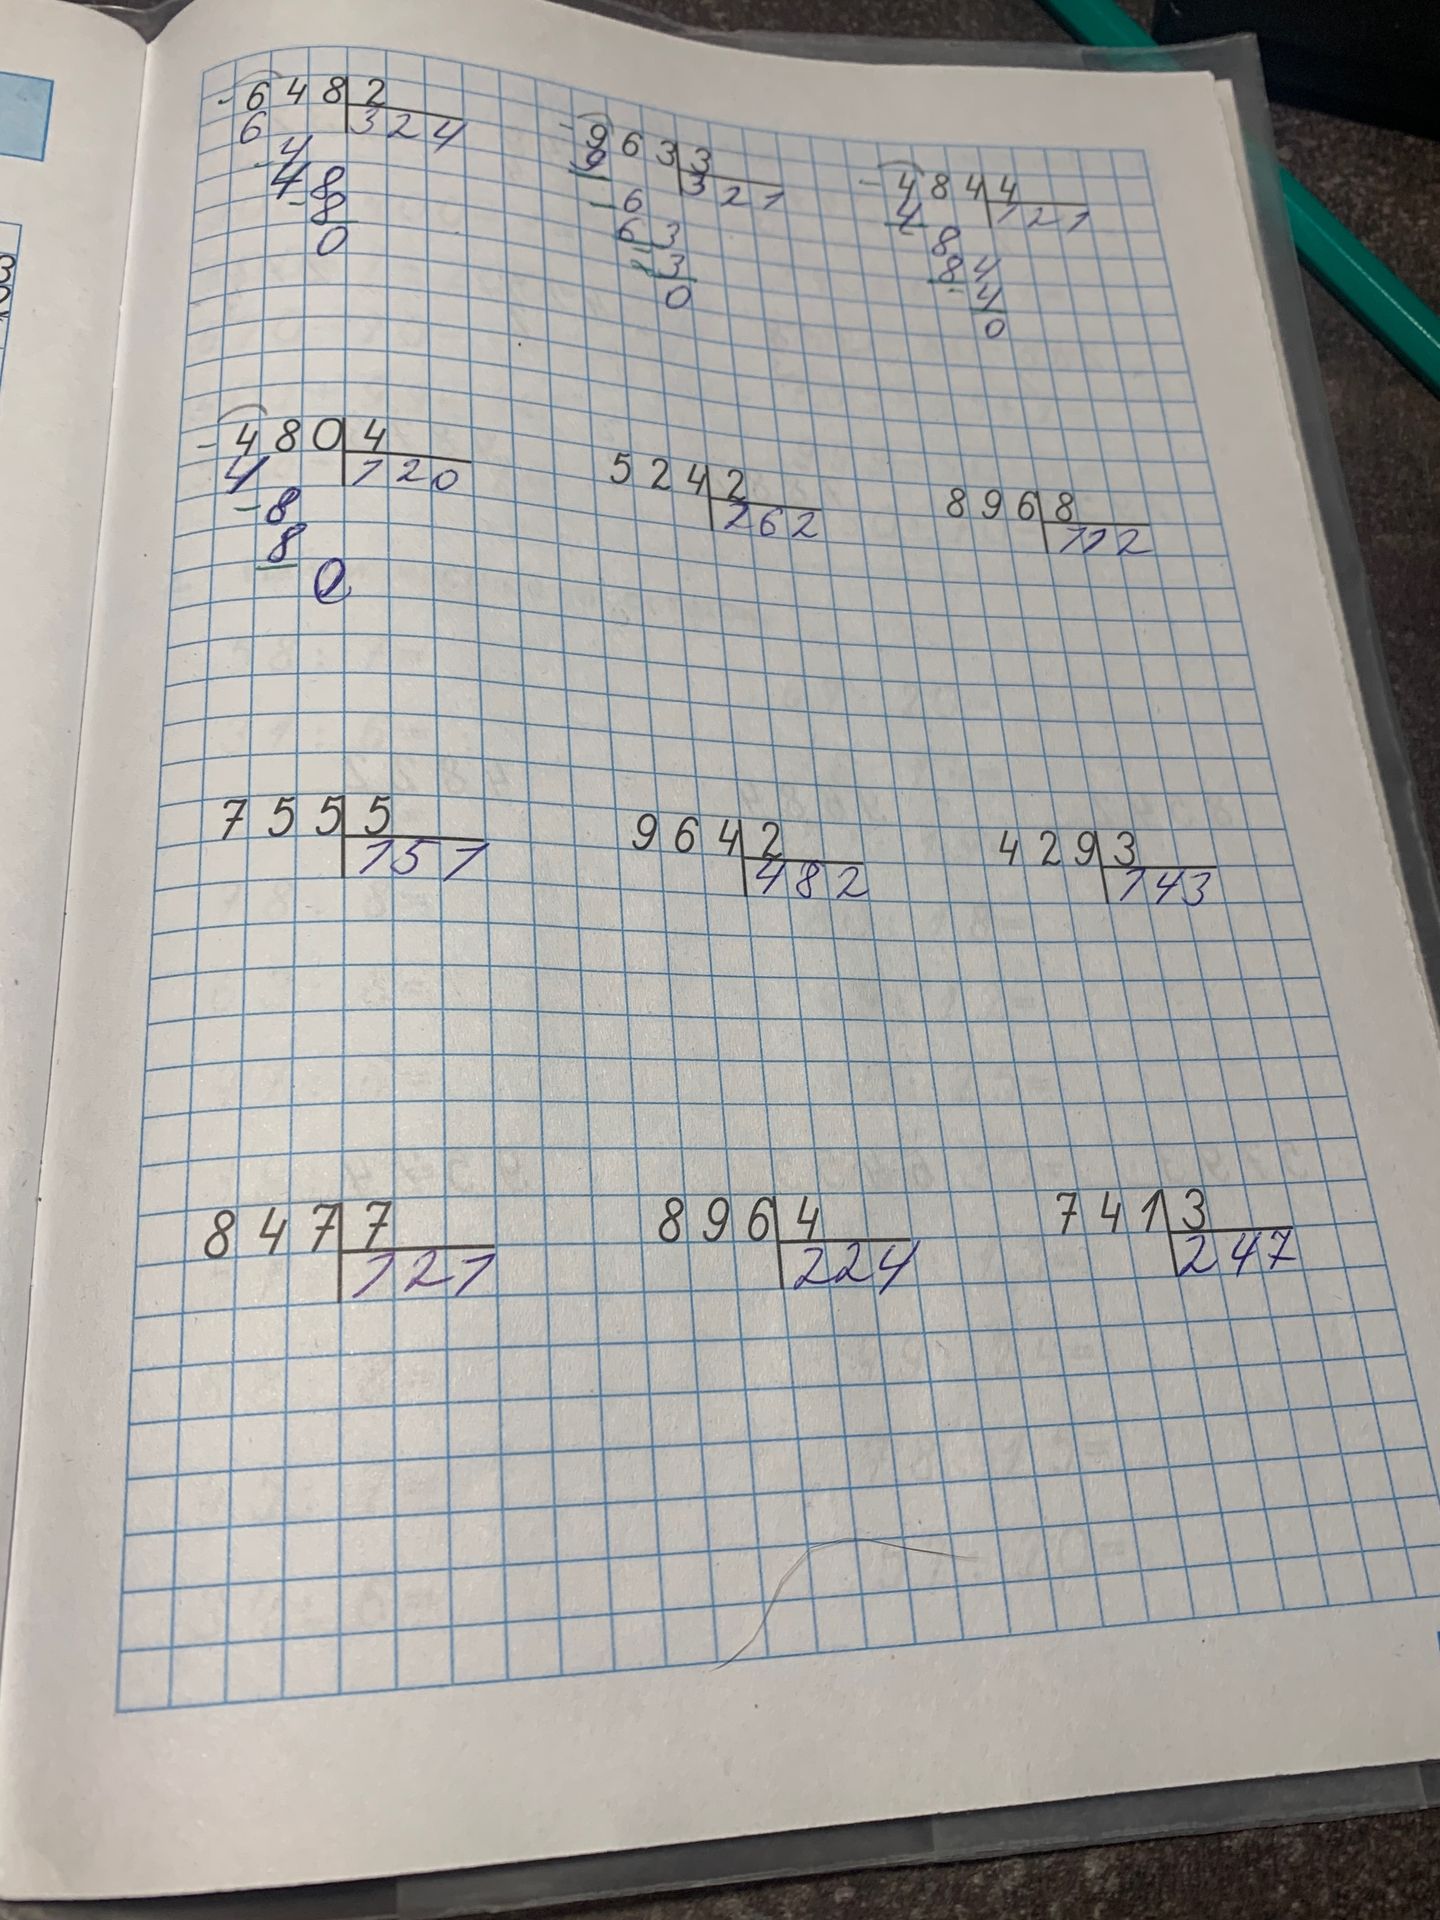 - 648 2
6 324
- 4
48
- 8
0
- 963 3
9 321
- 6
63
- 3
0
- 484 4
4 121
8
84
- 4
0
- 480 4
4 120
- 8
8
0
524 2
262
896 8
112
755 5
151
964 2
482
429 3
143
847 7
121
896 4
224
741 3
247